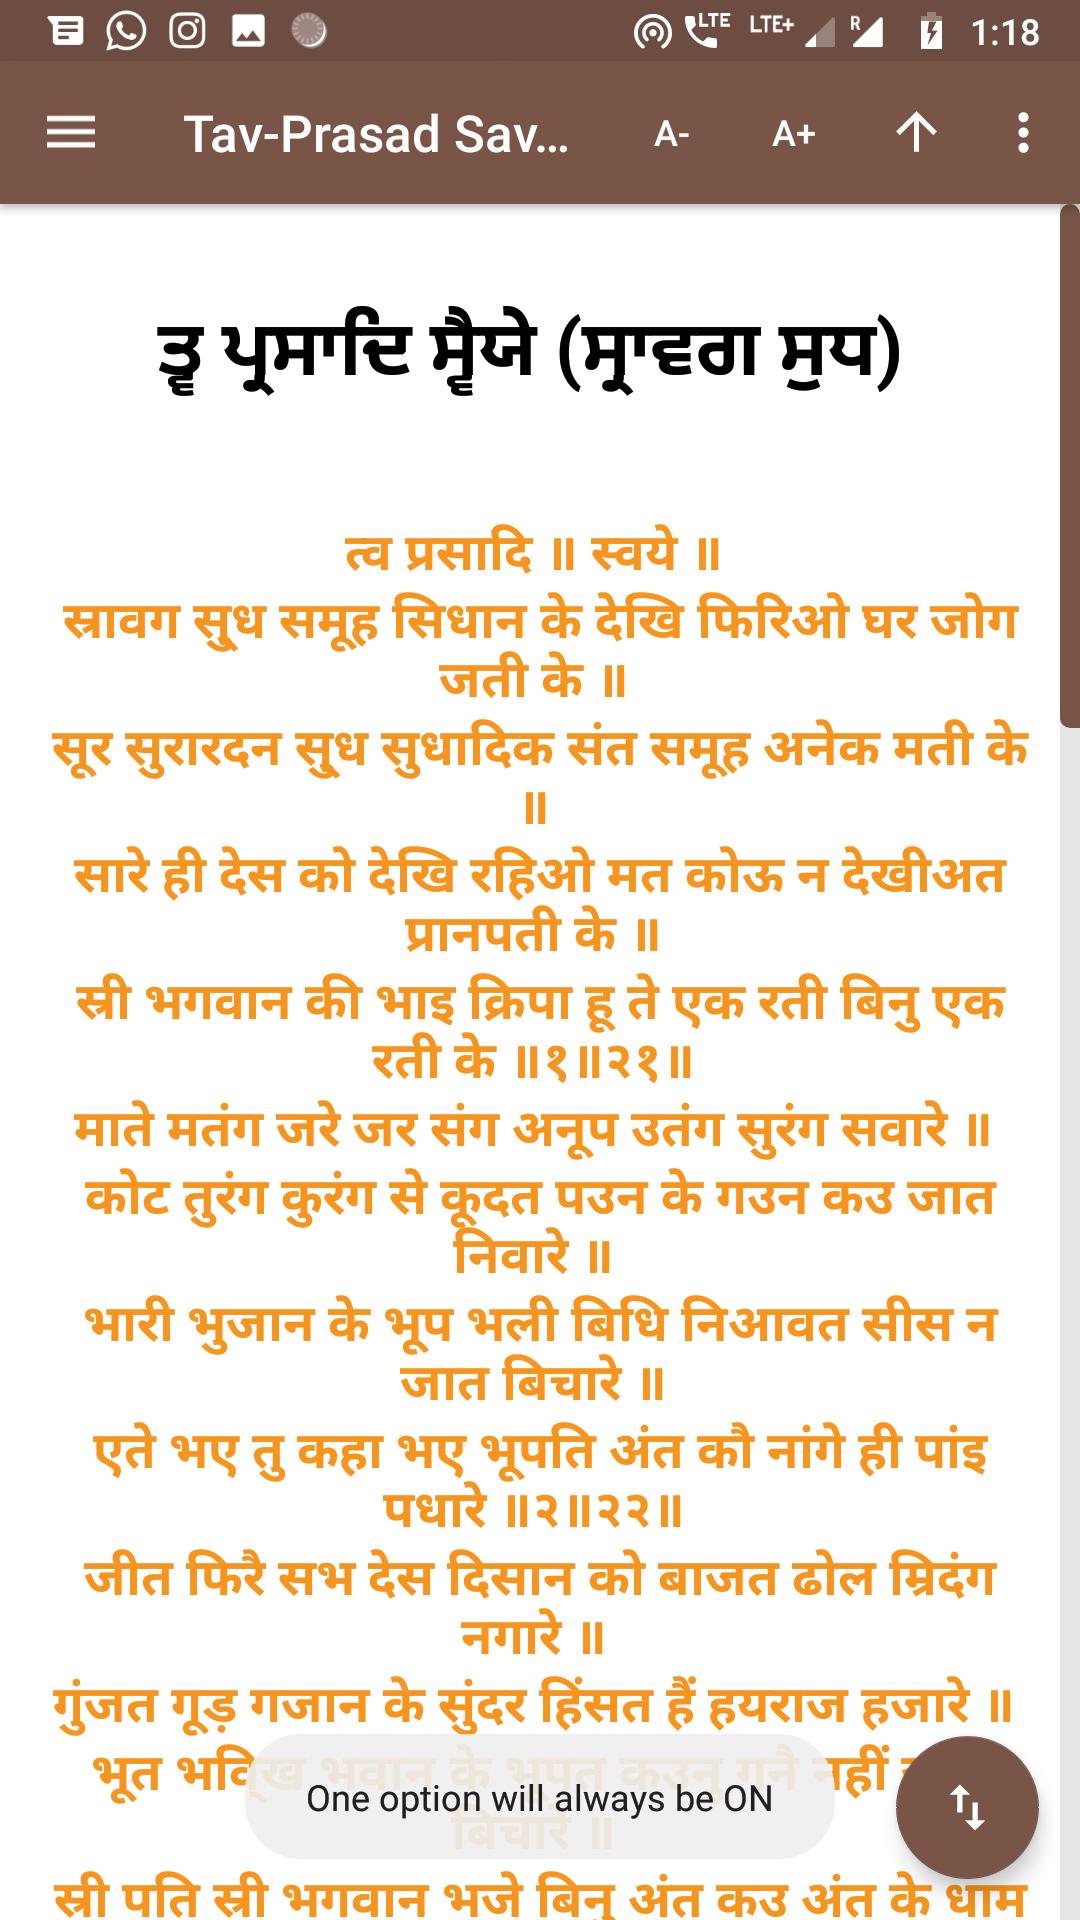 LTE LTE+ R 1:18
Tav-Prasad Sav... A- A+
ਤ੍ਵ ਪ੍ਰਸਾਦਿ ਸ੍ਵੈਯੇ (ਸ੍ਰਾਵਗ ਸੁਧ)
त्व प्रसादि ॥ स्वये ॥
स्रावग सु्ध समूह सिधान के देखि फिरिओ घर जोग
जती के ॥
सूर सुरारदन सु्ध सुधादिक संत समूह अनेक मती के
॥
सारे ही देस को देखि रहिओ मत कोऊ न देखीअत
प्रानपती के ॥
स्री भगवान की भाइ क्रिपा हू ते एक रती बिनु एक
रती के ॥१॥२१॥
माते मतंग जरे जर संग अनूप उतंग सुरंग सवारे ॥
कोट तुरंग कुरंग से कूदत पउन के गउन कउ जात
निवारे ॥
भारी भुजान के भूप भली बिधि निआवत सीस न
जात बिचारे ॥
एते भए तु कहा भए भूपति अंत कौ नांगे ही पांइ
पधारे ॥२॥२२॥
जीत फिरै सभ देस दिसान को बाजत ढोल म्रिदंग
नगारे ॥
गुंजत गूड़ गजान के सुंदर हिंसत हैं हयराज हजारे ॥
भूत भवि्ख भवान के भूपत कउनु गनै नहीं
बिचारे ॥
One option will always be ON
स्री पति स्री भगवान भजे बिनु अंत कउ अंत के धाम